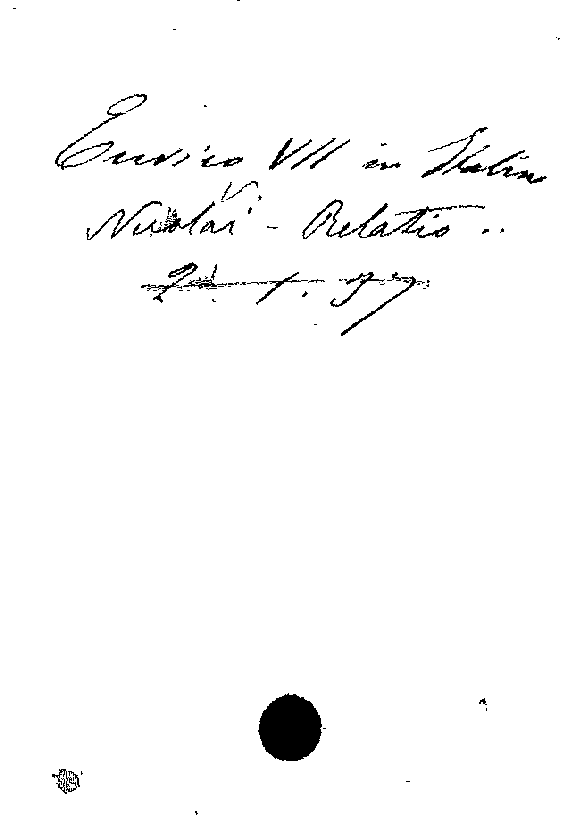 Enrico VII in Italia
V.
Nicolai - Relatio ..
2 1. 97